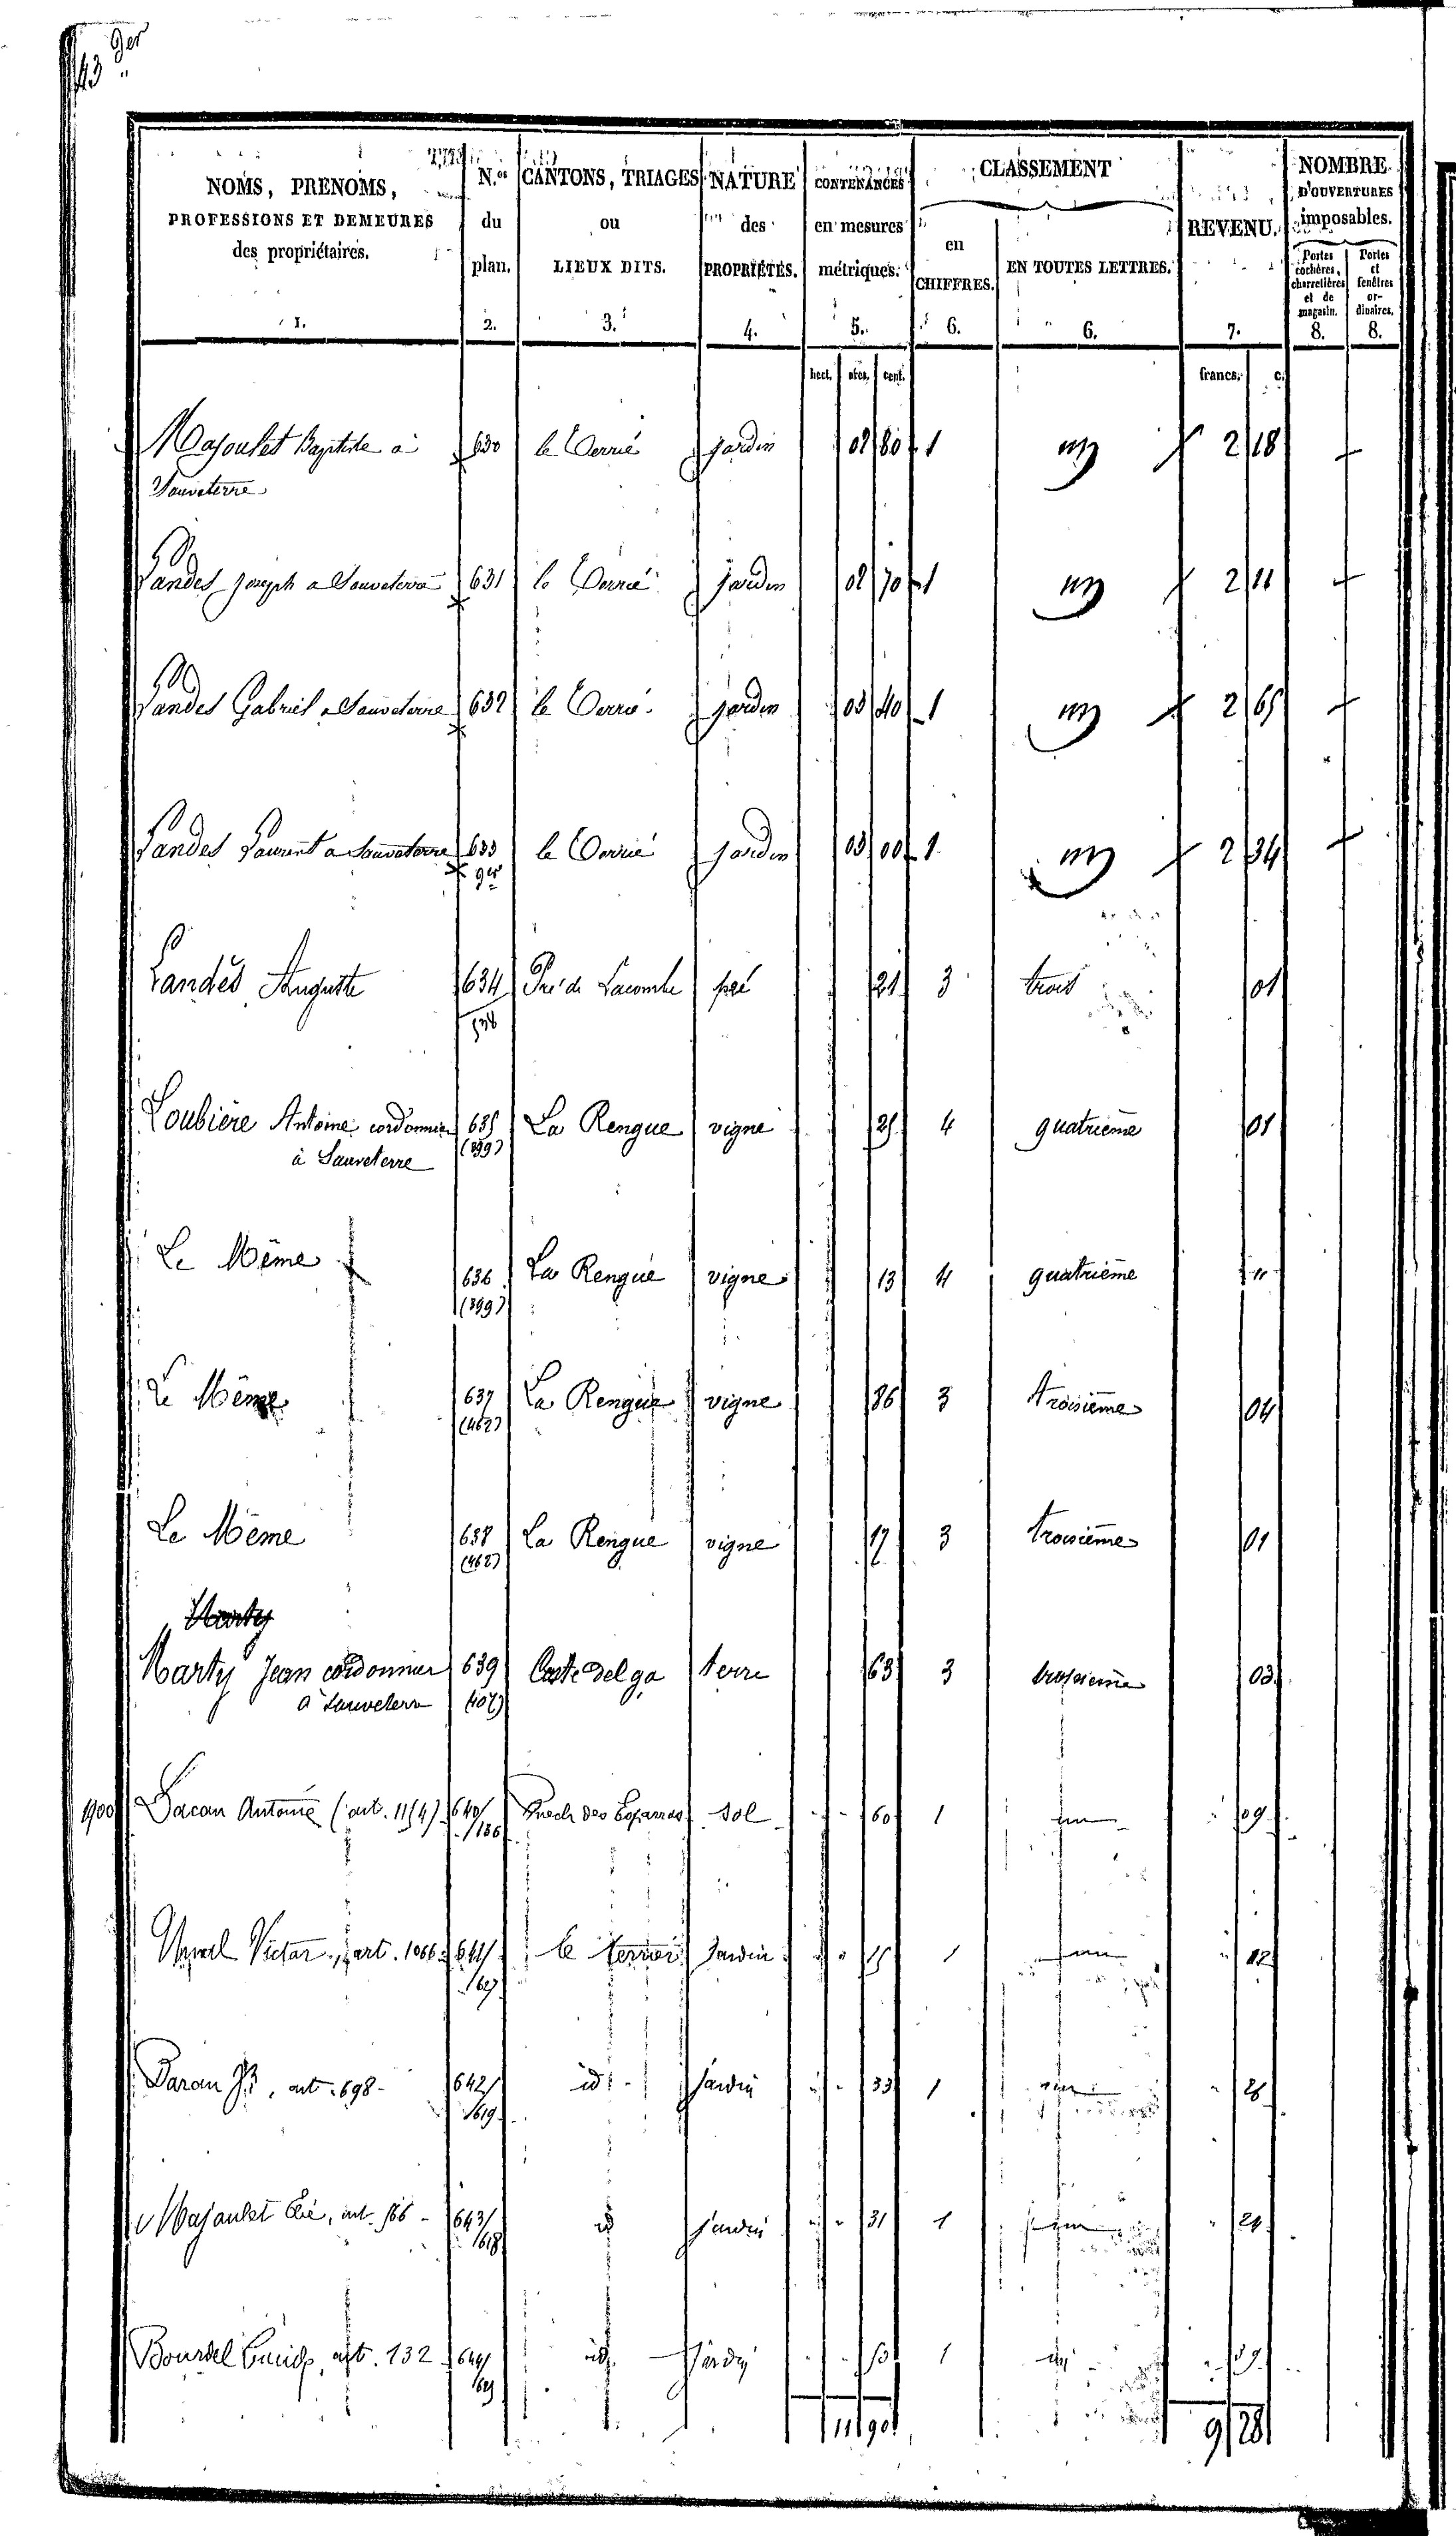 43 9er
NOMS, PRENOMS, PROFESSIONS ET DEMEURES des propriétaires. 1.
N.os du plan. 2.
CANTONS, TRIAGES ou LIEUX DITS. 3.
NATURE des PROPRIÉTÉS. 4.
CONTENANCES en mesures métriques. 5.
CLASSEMENT
en CHIFFRES. 6.
EN TOUTES LETTRES. 6.
REVENU. 7.
NOMBRE D'OUVERTURES imposables.
Portes cochères, charretières et de magasin. 8.
Portes et fenêtres ordinaires. 8.
hect. ares. cent. francs. c.
Majoulet Baptiste à 630 le Verrié jardin 02 80 1 un 2 18
Sauveterre
Landes Joseph a Sauveterre 631 le Verrié jardin 02 70 1 un 2 11
Landes Gabriel a Sauveterre 632 le Verrié jardin 03 40 1 un 2 65
Landes Laurent a Sauveterre 633 le Verrié jardin 03 00 1 un 2 34
9er
Landès Auguste 634 Pré de Lacombe pré 21 3 trois 01
538
Loubière Antoine cordonnier 635 La Rengue vigne 25 4 quatrième 01
à Sauveterre (399)
Le Même 636 La Rengue vigne 13 4 quatrième "
(399)
Le Même 637 La Rengue vigne 86 3 troisième 04
(462)
Le Même 638 La Rengue vigne 17 3 troisième 01
(462)
Marty
Marty Jean cordonnier 639 Coste del ga terre 63 3 troisième 03
a Sauveterre (407)
1900 Lacan Antoine (art. 1154) 640/ Puech des sol 60 1 un 09
/186
Victor, art. 1066 641/ le terrier Jardin 15 1 un 12
/627
Baran JB, art. 698 642/ id jardin 33 1 un 26
/619
Majoulet Elie, art. 566 643/ id jardin 31 1 un 24
/618
Bourdel, art. 132 644/ id jardin 50 1 un 39
11 90 9 28